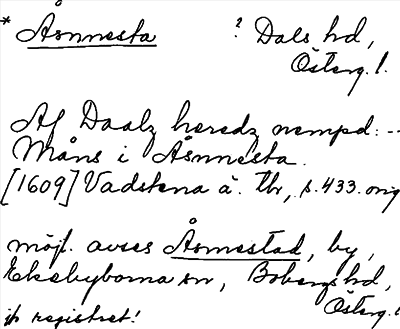 * Åsnnesta ? Dals hd,
Österg. l.
Af Daalz heredz nempd: --
Måns i Åsnnesta.
[1609] Vadstena ä. tbr, s. 433. orig
möjl. avses Åsmestad, by,
Ekebyborna sn, Bobergs hd,
Österg. l.
jfr registret!